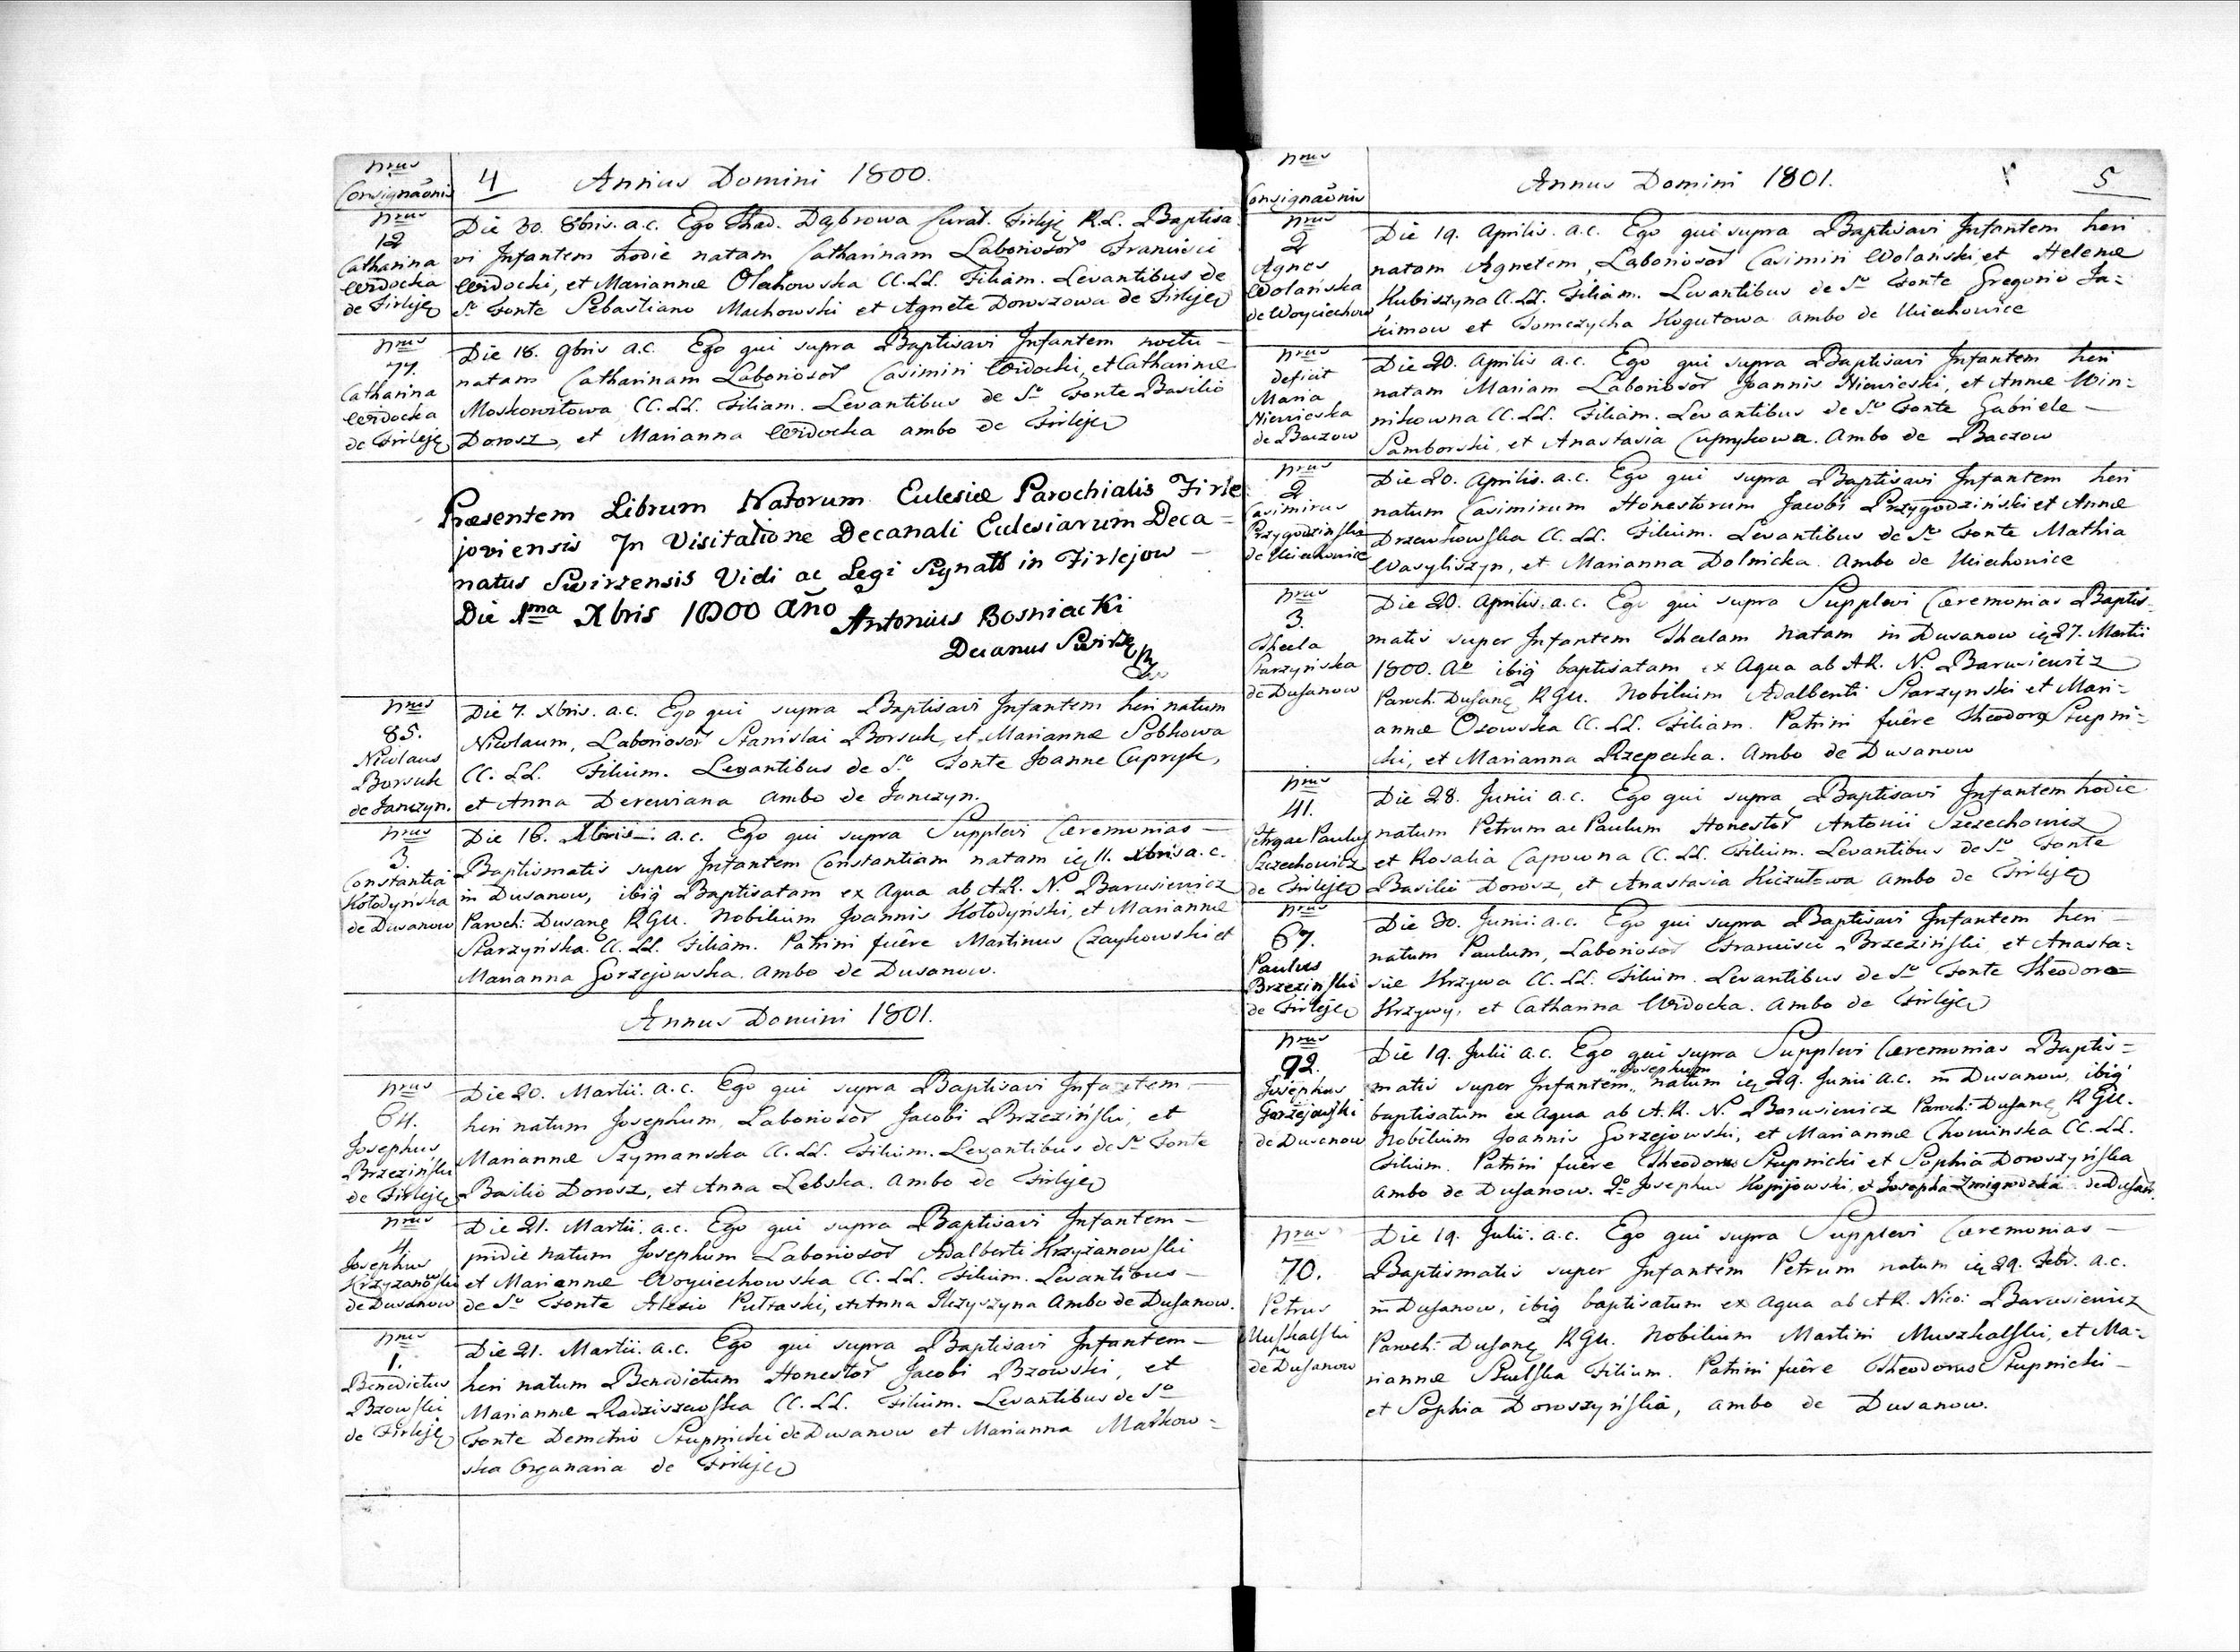 Nrus
Consignaōnis
4 Annus Domini 1800.
Nrus
12
Catharina
Widocka
de Firlejẹ
Die 30. 8bris. a.c. Ego Thad. Dąbrowa Curat. Firlejẹ R.L. Baptisa
vi Infantem hodie natam Catharinam Laboriosor Francisci
Widocki, et Mariannæ Olehowska CC.LL. Filiam. Levantibus de
So Fonte Sebastiano Machowski et Agnete Doroszowa de Firleje
Nrus
77.
Catharina
Widocka
de Firlejẹ
Die 18. 9bris a.c. Ego qui supra Baptisavi Infantem noctu-
natam Catharinam Laboriosor Casimiri Widocki, et Catharinæ
Moskowitowa CC.LL. Filiam. Levantibus de So Fonte Basilio
Dorosz, et Marianna Widocka ambo de Firleje
Præsentem Librum Natorum Eclesiæ Parochialis Firle
joviensis In Visitatione Decanali Eclesiarum Deca=
natus Swirzensis Vidi ac Legi Sygnatt in Firlejow -
Die 1ma Xbris 1800 año Antonius Bosniacki
Decanus Swirzẹ
Nrus
85.
Nicolaus
Borsuk
de Janczyn.
Die 7. Xbris. a.c. Ego qui supra Baptisavi Infantem heri natum
Nicolaum, Laboriosor Stanislai Borsuk, et Mariannæ Sobkowa
CC. LL. Filium. Levantibus de So Fonte Joanne Cupryk,
et Anna Derewiana ambo de Janczyn.
Nrus
3.
Constantia
Kołodyńska
de Dusanow
Die 16. Xbris. a.c. Ego qui supra Supplevi Cæremonias -
Baptismatis super Infantem Constantiam natam ię 11. Xbris a.c.
in Dusanow, ibiq Baptisatam ex Aqua ab A.R. No Barusiewicz
Paroch: Dusanẹ RGU. Nobilium Joannis Kołodyński, et Mariannæ
Starzyńska CC.LL. Filiam. Patrini fuêre Martinus Czaykowski et
Marianna Gorzejowska. Ambo de Dusanow.
Annus Domini 1801.
Nrus
64.
Josephus
Brzeziński
de Firlejẹ
Die 20. Martii. a.c. Ego qui supra Baptisavi Infantem -
heri natum Josephum, Laboriosor Jacobi Brzeziński, et
Mariannæ Szymanska CC.LL. Filium. Levantibus de So Fonte
Basilio Dorosz, et Anna Lebska. Ambo de Firleje
Nrus
4
Josephus
Krzyżanowski
de Dusanow
Die 21. Martii. a.c. Ego qui supra Baptisavi Infantem -
pridie natum Josephum Laboriosor Adalberti Krzyżanowski
et Mariannæ Woyciechowska CC. LL. Filium. Levantibus -
de So Fonte Alexio Putraski, et Anna Ilczyszyna Ambo de Dusanow.
Nrus
1.
Benedictus
Bzowski
de Firlejẹ
Die 21. Martii. a.c. Ego qui supra Baptisavi Infantem -
heri natum Benedictum Honestor Jacobi Bzowski, et
Mariannæ Radziszewska CC.LL. Filium. Levantibus de So
Fonte Demetrio Stupnicki de Dusanow et Marianna Markow=
ska Organaria de Firleje
Nrus
Consignaōnis
Annus Domini 1801. 5
Nrus
2
Agnes
Wolańska
de Woyciechow
Die 19. Aprilis. a.c. Ego qui supra Baptisavi Infantem heri
natam Agnetem, Laboriosor Casimiri Wolański, et Helenæ
Kubiszyna CC.LL. Filiam. Levantibus de So Fonte Gregorio Ja=
kimow et Tomczycha Kogutowa ambo de Uciechowice
Nrus
deficit
Maria
Niewieska
de Baczow
Die 20. Aprilis a.c. Ego qui supra Baptisavi Infantem heri
natam Mariam Laboriosor Joannis Niewieski, et Annæ Win=
nikowna CC.LL. Filiam. Levantibus de So Fonte Gabriele -
Samborski, et Anastasia Cuprykowa. Ambo de Baczow
Nrus
2
Casimirus
Przygodziński
de Uciechowice
Die 20. Aprilis. a.c. Ego qui supra Baptisavi Infantem heri
natum Casimirum Honestorum Jacobi Przygodziński et Annæ
Drzewkowska CC. LL. Filium. Levantibus de So Fonte Mathia
Wasyliszyn, et Marianna Dolnicka. Ambo de Uciechowice
Nrus
3.
Thecla
Starzyńska
de Dusanow
Die 20. Aprilis. a.c. Ego qui supra Supplevi Cæremonias Baptis=
matis super Infantem Theclam Natam in Dusanow ię 27. Martii
1800. Ao ibiq baptisatam ex Aqua ab A.R. No Barusiewitz
Paroch. Dusanẹ RGU. Nobilium Adalberti Starzynski et Mari=
annæ Osowska CC.LL. Filiam. Patrini fuêre Theodorẹ Stupni=
cki, et Marianna Rzepecka. Ambo de Dusanow
Nrus
41.
Petrus ac Paulus
Szczechowicz
de Firleje
Die 28. Junii a.c. Ego qui supra Baptisavi Infantem hodie
natum Petrum ac Paulum Honestor Antonii Szczechowicz
et Rosalia Capowna CC. LL. Filium. Levantibus de So Fonte
Basilio Dorosz, et Anastasia Kiczutowa ambo de Firleje
Nrus
67.
Paulus
Brzeziński
de Firleje
Die 30. Junii a.c. Ego qui supra Baptisavi Infantem heri -
natum Paulum, Laboriosor Francisci Brzeziński, et Anasta=
siæ Krzywa CC. LL. Filium. Levantibus de So Fonte Theodoro=
Krzywy, et Catharina Widocka. Ambo de Firleje
Nrus
92.
Josephus
Gorzejowski
de Dusanow
Die 19. Julii a.c. Ego qui supra Supplevi Cæremonias Baptis=
matis super Infantem „Josephum„ natum ię 29. Junii a.c. in Dusanow, ibiq
baptisatum ex Aqua ab A.R. No Barusiewicz Paroch: Dusanẹ RGU.
Nobilium Joannis Gorzejowski, et Mariannæ Chominska CC.LL.
Filium. Patrini fuêre Theodorus Stupnicki et Sophia Doroszyńska
ambo de Dusanow. 2o Josephus Kopijowski, et Josepha Zmigrodzka de Dusan.
Nrus
70.
Petrus
Muszkalski
de Dusanow
Die 19. Julii. a.c. Ego qui supra Supplevi Cæremonias -
Baptismatis super Infantem Petrum natum ię 29. Febr. a.c.
in Dusanow, ibiq baptisatum ex Aqua ab A.R. Nico: Barusiewicz
Paroch: Dusanẹ RGU. Nobilium Martini Muszkalski, et Ma=
riannæ Filium. Patrini fuêre Theodorus Stupnicki -
et Sophia Doroszyńska, ambo de Dusanow.